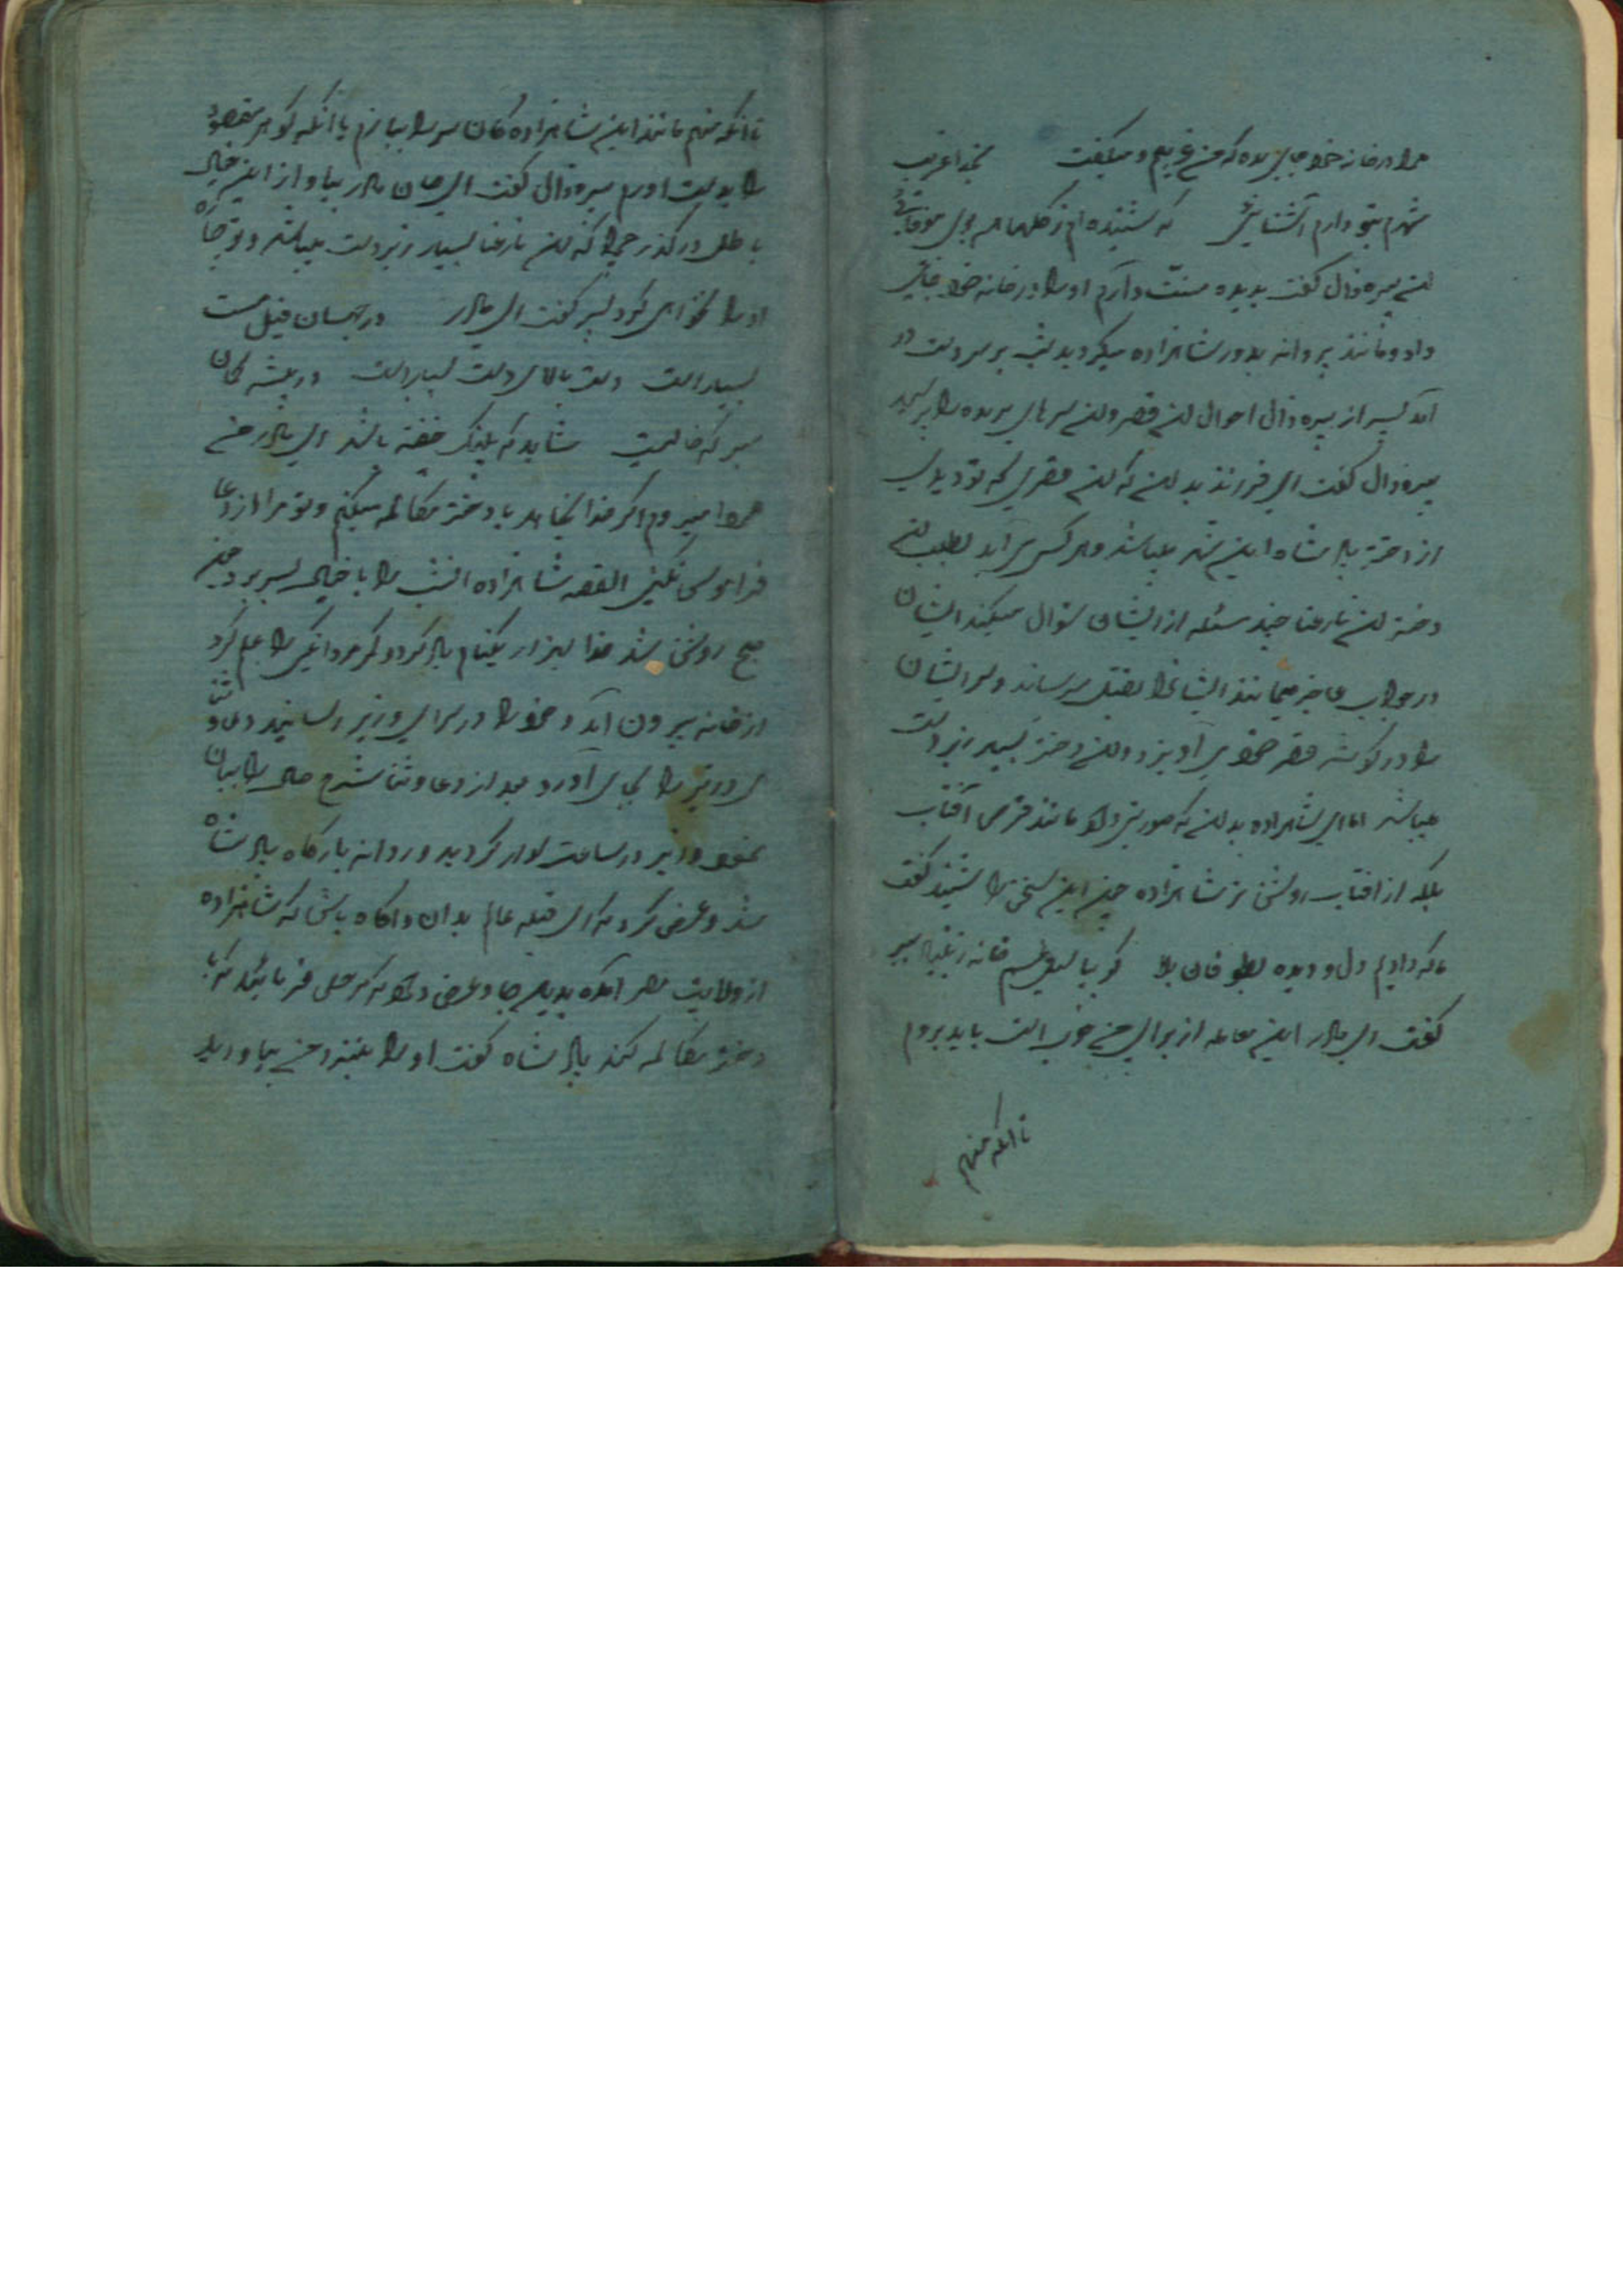 مرا در خانه خود جای بده که من غریبم و میگفت بخدا غریب
شهرم بتو دارم آشنایی که شنیده ام ز گلها همه بوی
آن پیره زال گفت بدیده منت دارم او را در خانه خود جای
داد و مانند پروانه بدور شاهزاده میگردید شب بر سر دست در
آمد پسر از پیره زال احوال آن قصر و آن سرهای بریده را پرسید
پیره زال گفت ای فرزند بدان که آن قصری که تو دیدی
از دختر پادشاه این شهر میباشد و هر کس می آید بطلب آن
دختر آن نارعنا چند مسئله از ایشان سئوال میکند ایشان
در جواب عاجز میمانند ایشانرا بقتل میرساند و سر ایشان
را در گوشه قصر خود می آویزد و آن دختر بسیار زبردست
میباشد اما ای شاهزاده بدان که صورتی دارد مانند قرص آفتاب
بلکه از افتاب روشن تر شاهزاده چون این سخن را شنید گفت
ما که دادیم دل و دیده بطوفان بلا گو بیا سیل غم خانه ز بنیاد ببر
گفت ای مادر این معامله از برای من خوب است باید بروم
تا انکه منهم
تا انکه منهم مانند این شاهزاده گان سر را ببازم یا انکه گوهر مقصود
را بدست اورم پیره زال گفت ای جان مادر بیا و از این خیال
باطل در گذر چرا که آن نارعنا بسیار زبردست میباشد و تو جواب
او را نخواهی کرد پسر گفت ای مادر در جهان فیل مست
بسیار است دست بالای دست بسیار است در بیشه گمان
مبر که خالیست شاید که پلنگ خفته باشد ای مادر من
فردا میروم اگر خدا بخواهد با دختر مکالمه میکنم و تو مرا از دعا
فراموش نکنی القصه شاهزاده انشب را با خیال بسر برد چون
صبح روشن شد خدا بهزار یکنام یاد کرد و کمر مردانگی را علم کرد
از خانه بیرون آمد و خود را در سرای وزیر رسانید دعا و ثنا
ی وزیر را بجای آورد و بعد از دعا و ثنا شرح حال را بیان
نمود وزیر در ساعت سوار گردید و روانه بارگاه پادشاه
شد و عرض کرد که ای قبله عالم بدان و آگاه باش که شاهزاده
از ولایت مصر آمده بدین جا و عرض دارد که مرخص فرمائید که با
دختر مکالمه کند پادشاه گفت او را بنزد من بیاورید